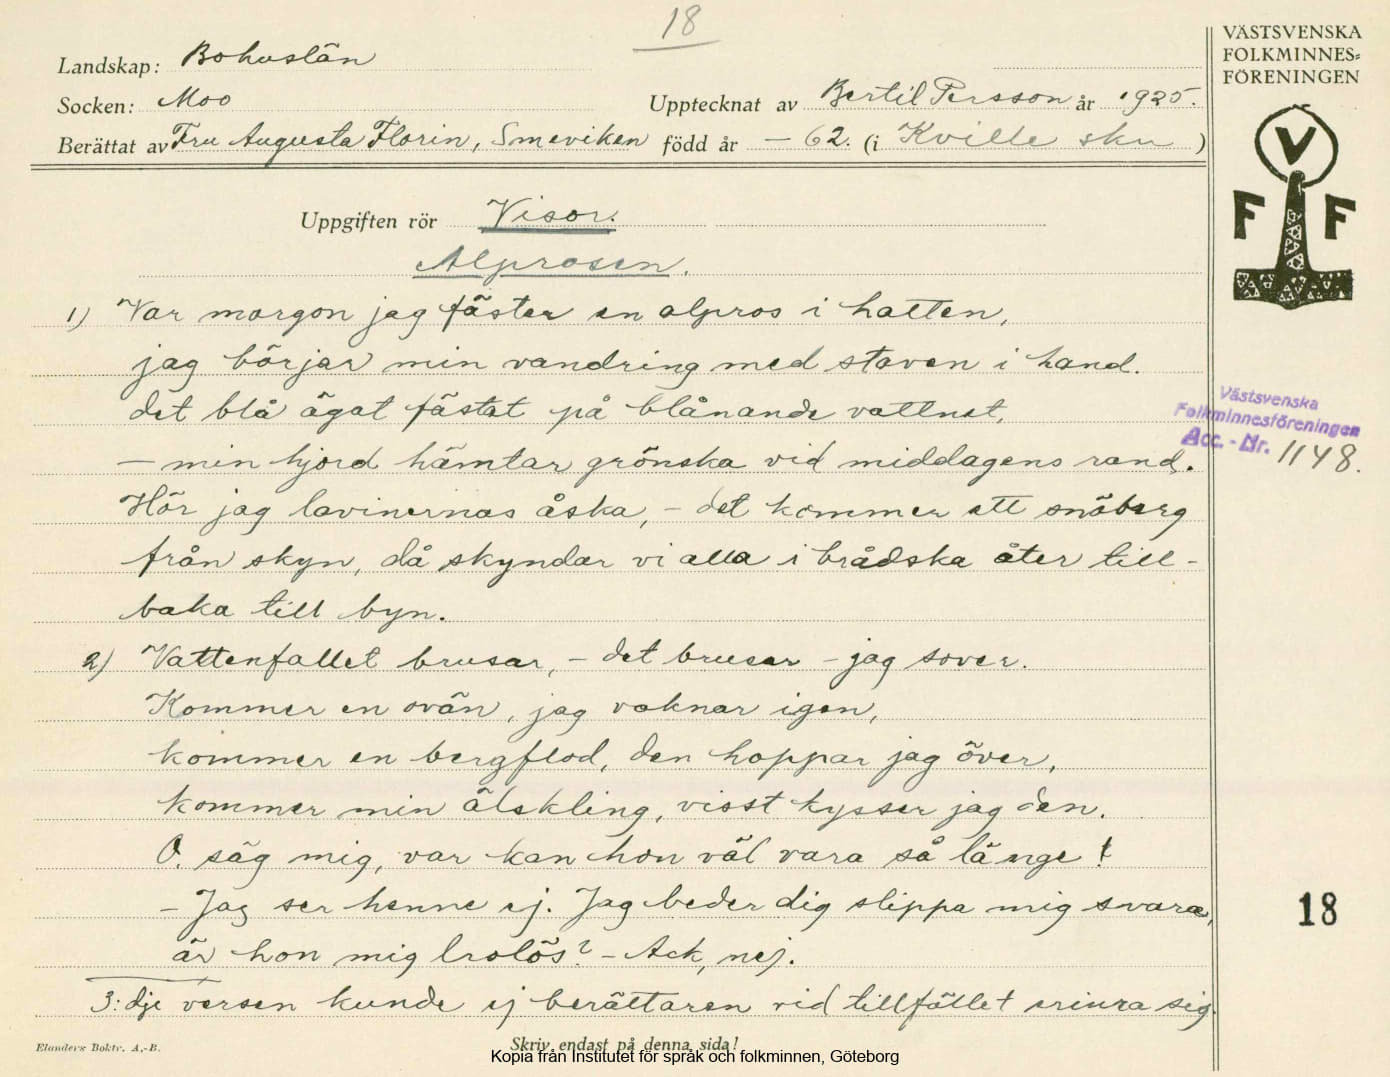 18
VÄSTSVENSKA
FOLKMINNES=
FÖRENINGEN
Landskap: Bohuslän
Socken: Moo
Upptecknat av Bertil Persson år 1925.
Berättat av Fru Augusta Florin, Smeviken född år – 62. (i Kville skn )
V
F F
Uppgiften rör Visor.
Alprosen.
1) Var morgon jag fäster en alpros i hatten,
jag börjar min vandring med staven i hand.
det blå ägat fästat på blånande vattnet,
– min hjord hämtar grönska vid middagens rand.
Västsvenska
Folkminnesföreningen
Acc. - Nr. 1148.
Hör jag lavinernas åska, – det kommer ett snöberg
från skyn, då skyndar vi alla i brådska åter till-
baka till byn.
2) Vattenfallet brusar, – det brusar – jag sover.
Kommer en ovän, jag vaknar igen,
kommer en bergflod, den hoppar jag över,
kommer min älskling, visst kysser jag den.
O, säg mig, var kan hon väl vara så länge!
– Jag ser henne ej. Jag beder dig slippa mig svara,
är hon mig trolös? – Ack, nej.
18
3:dje versen kunde ej berättaren vid tillfället erinra sig.
Elanders Boktr. A.-B.
Skriv endast på denna sida!
Kopia från Institutet för språk och folkminnen, Göteborg